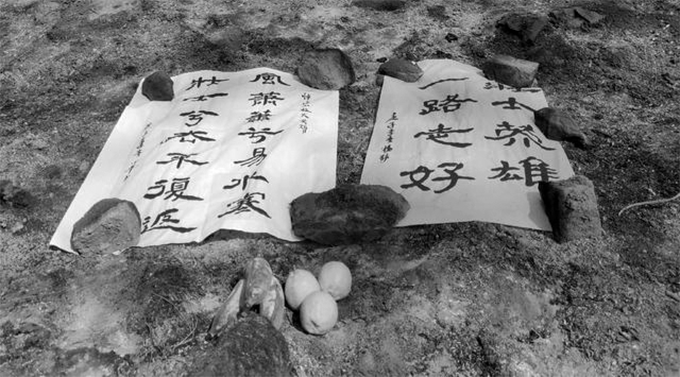 士英雄
一路走好
風蕭蕭兮易水寒
壯士兮去不復返